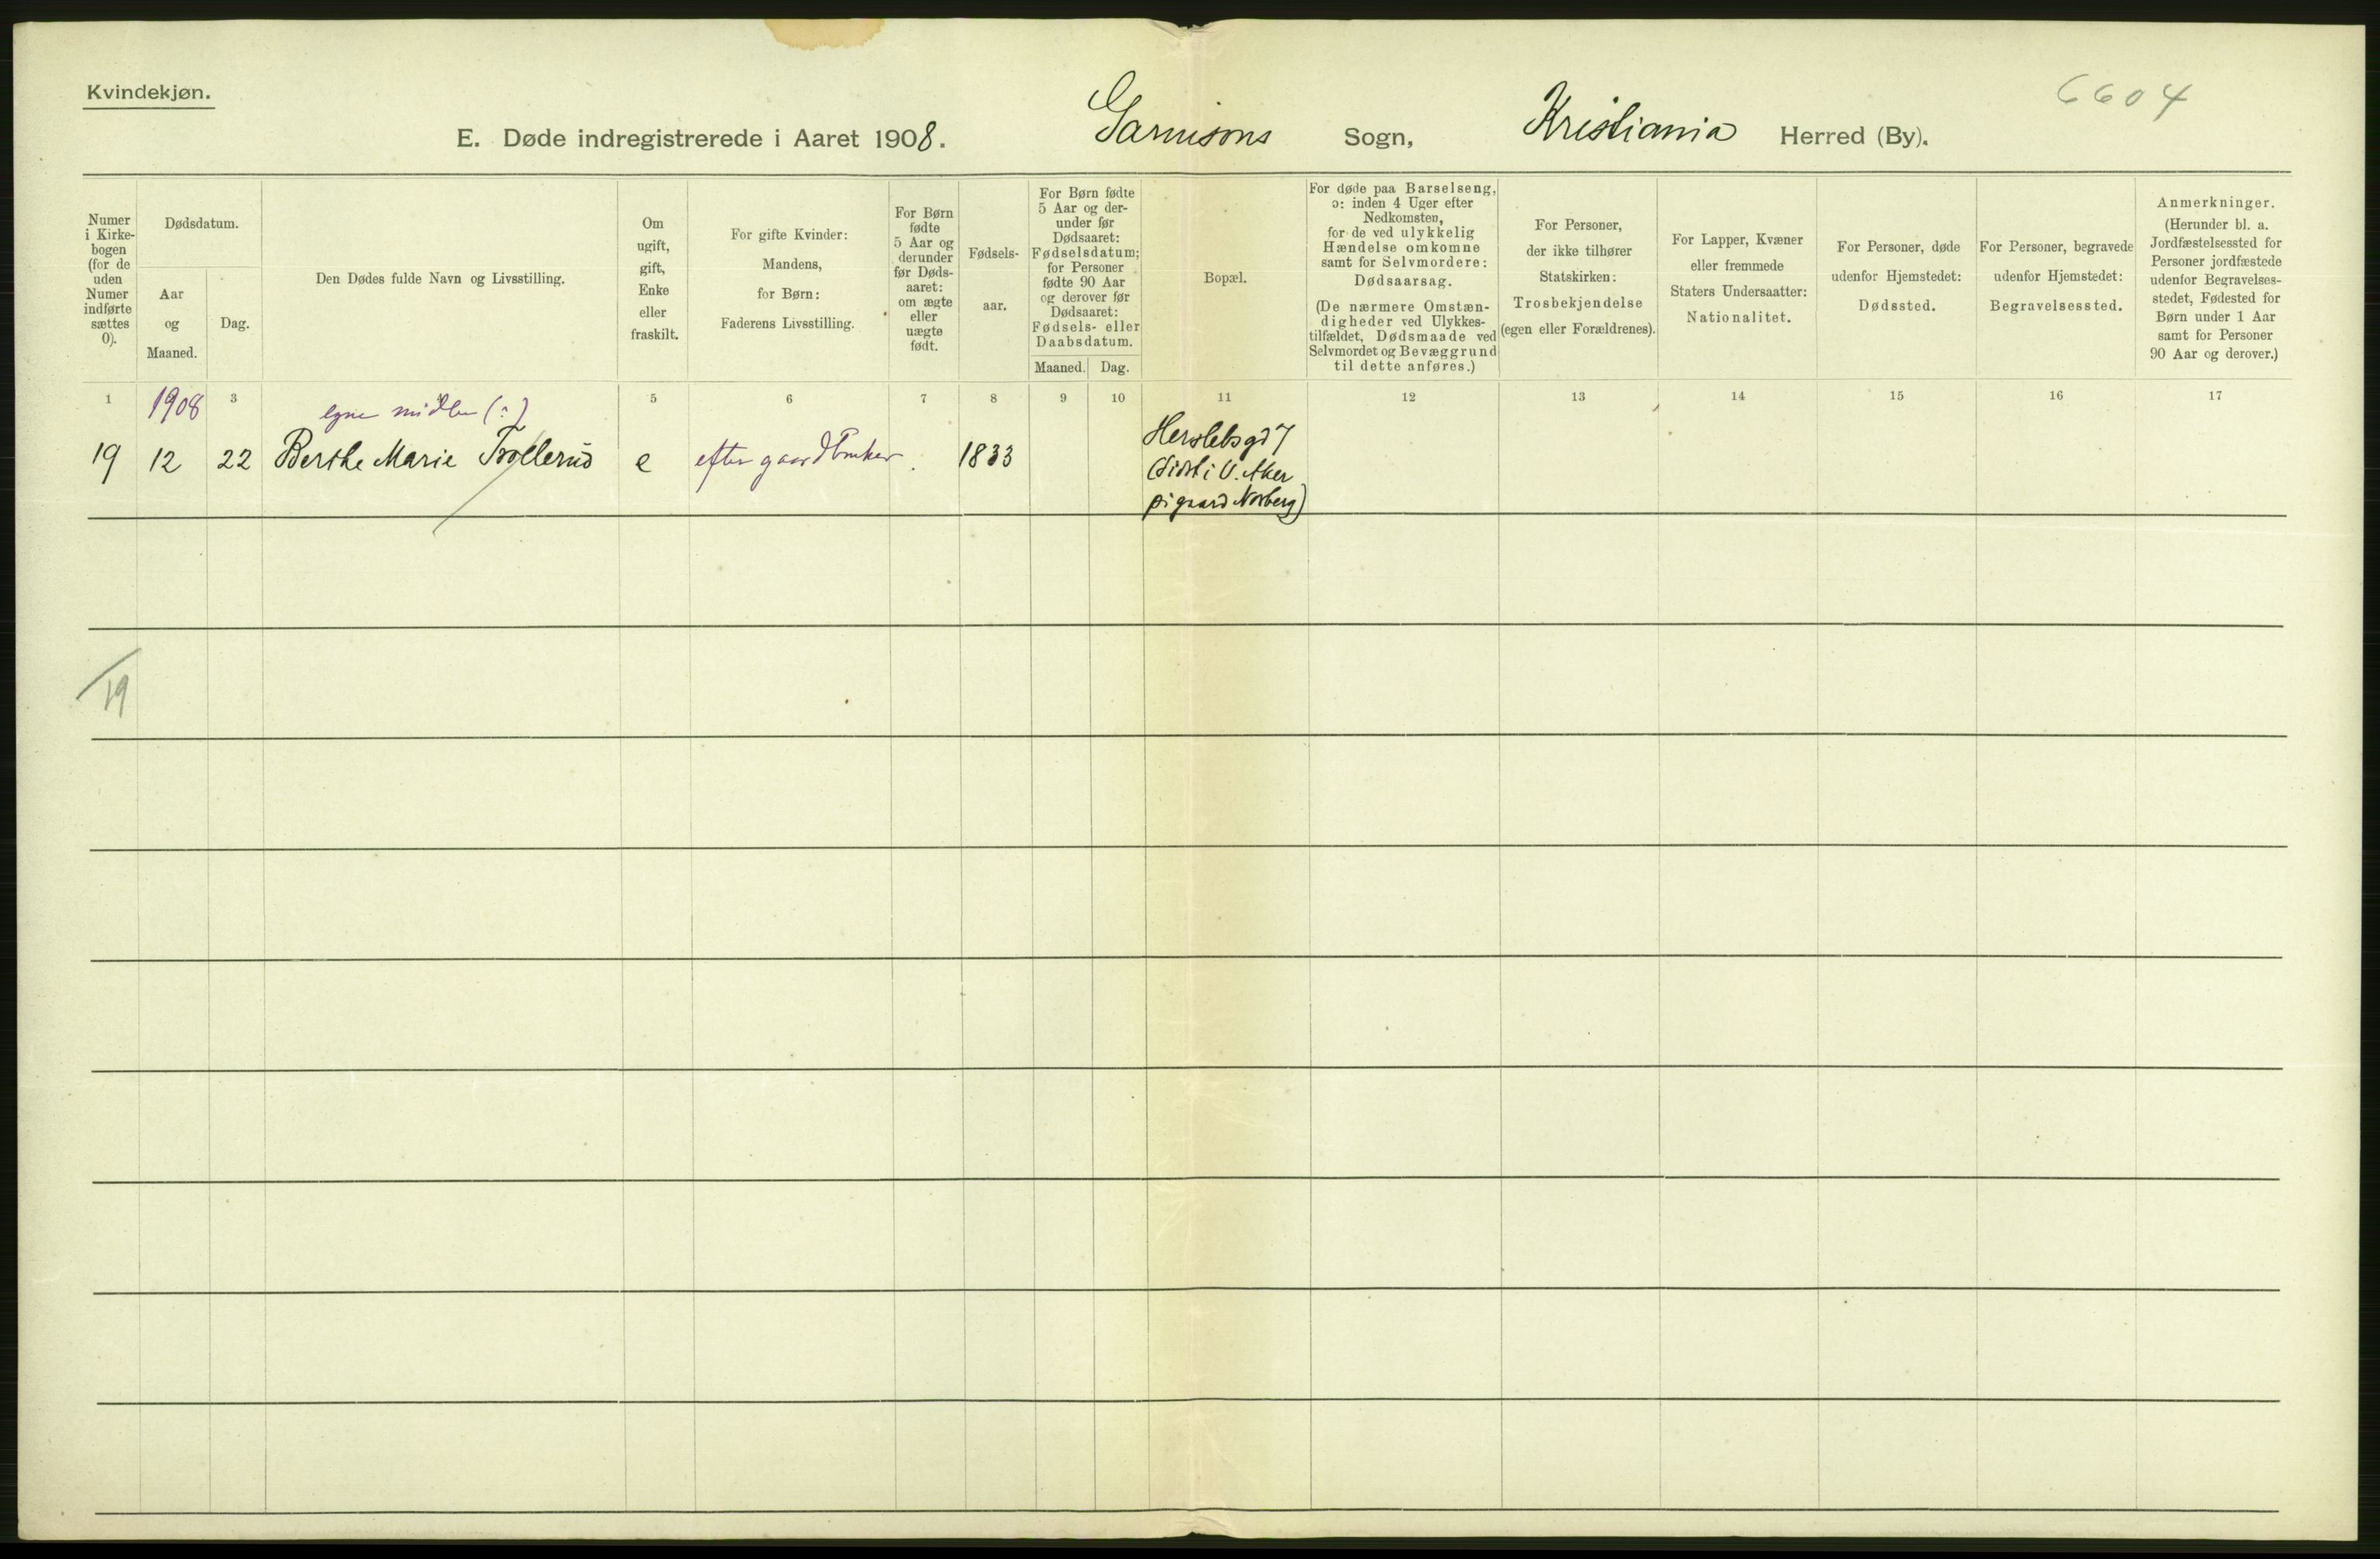 Kvindekjøn.
6604
E. Døde indregistrerede i Aaret 1908. Garnisons Sogn, Kristiania Herred (By).
Numer
i Kirke-
bogen
(for de
uden
Numer
indførte
sættes
0).
Dødsdatum.
Aar
og
Maaned.
Dag.
Den Dødes fulde Navn og Livsstilling.
Om
ugift,
gift,
Enke
eller
fraskilt.
For gifte Kvinder:
Mandens,
for Børn:
Faderens Livsstilling.
For Børn
fødte
5 Aar og
derunder
før Døds-
aaret:
om ægte
eller
uægte
født.
Fødsels-
aar.
For Børn fødte
5 Aar og der-
under før
Dødsaaret:
Fødselsdatum;
for Personer
fødte 90 Aar
og derover før
Dødsaaret:
Fødsels- eller
Daabsdatum.
Maaned. Dag.
Bopæl.
For døde paa Barselseng,
ɔ: inden 4 Uger efter
Nedkomsten,
for de ved ulykkelig
Hændelse omkomne
samt for Selvmordere:
Dødsaarsag.
(De nærmere Omstæn-
digheder ved Ulykkes-
tilfældet, Dødsmaade ved
Selvmordet og Bevæggrund
til dette anføres.)
For Personer,
der ikke tilhører
Statskirken:
Trosbekjendelse
(egen eller Forældrenes).
For Lapper, Kvæner
eller fremmede
Staters Undersaatter:
Nationalitet.
For Personer, døde
udenfor Hjemstedet:
Dødssted.
For Personer, begravede
udenfor Hjemstedet:
Begravelsessted.
Anmerkninger.
(Herunder bl. a.
Jordfæstelsessted for
Personer jordfæstede
udenfor Begravelses-
stedet, Fødested for
Børn under 1 Aar
samt for Personer
90 Aar og derover.)
1 3 5 6 7 8 9 10 11 12 13 14 15 16 17
1908 egne midler (?)
19 12 22 Berthe Marie Trollerud e efter gaardbruker. 1833
Herslebsgd 7
(sidst i V. Aker
pigaard Norberg)
19